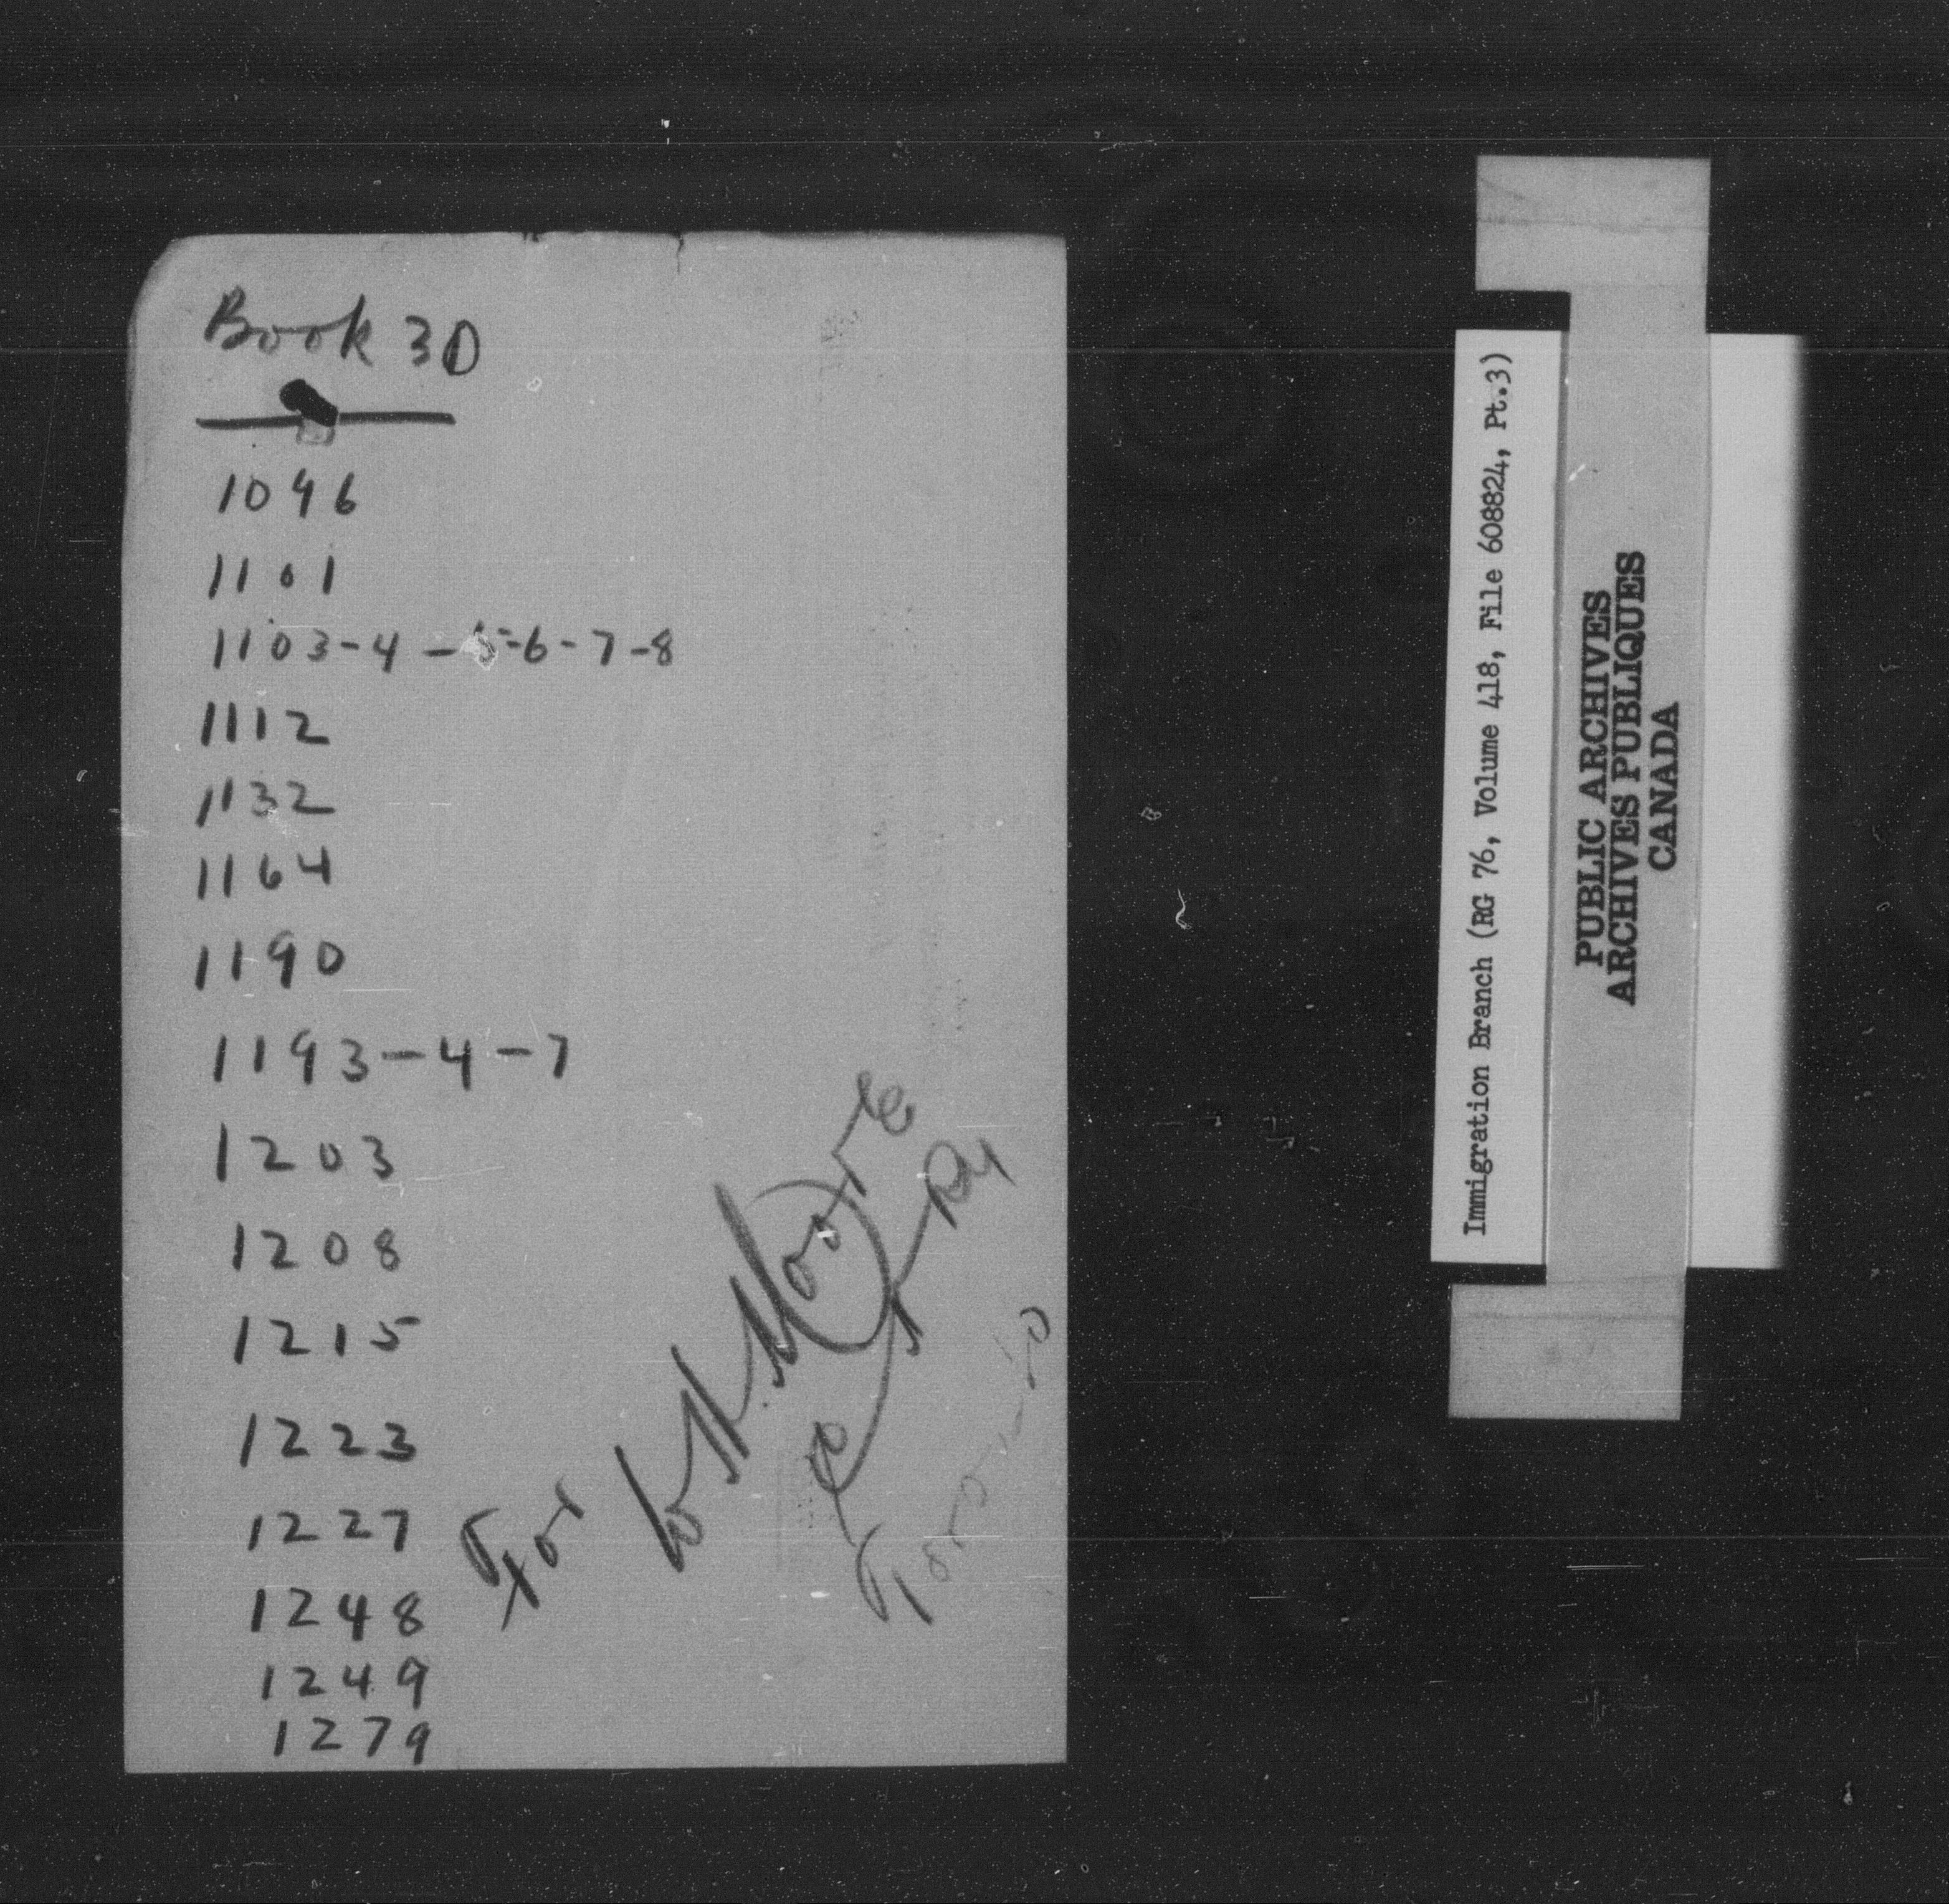 Book 3D
1096
1101
1103-4-5-6-7-8
1112
1132
1164
1190
1193-4-7
1203
1208
1215
1223
1227
1248
1249
1279
For
W.H. Moore
C P Ry
Toronto
Immigration Branch (RG 76, Volume 418, File 608824, Pt.3)
PUBLIC ARCHIVES
ARCHIVES PUBLIQUES
CANADA